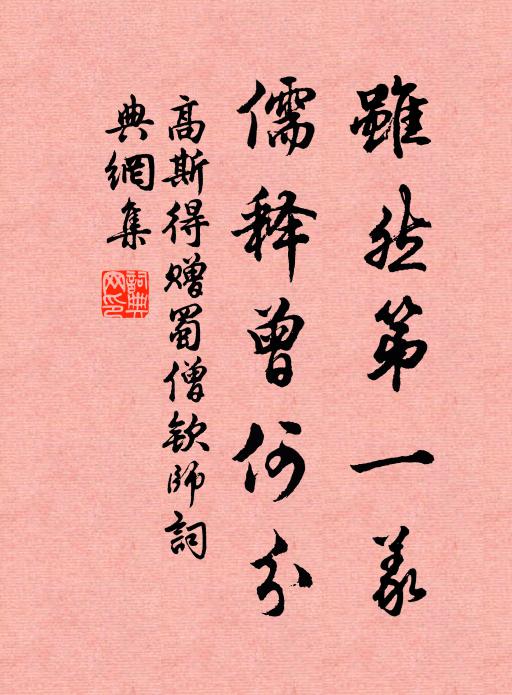 雖然第一義
儒释曾何分
高斯得赠蜀僧欽師詞
典網集
詞典
网印